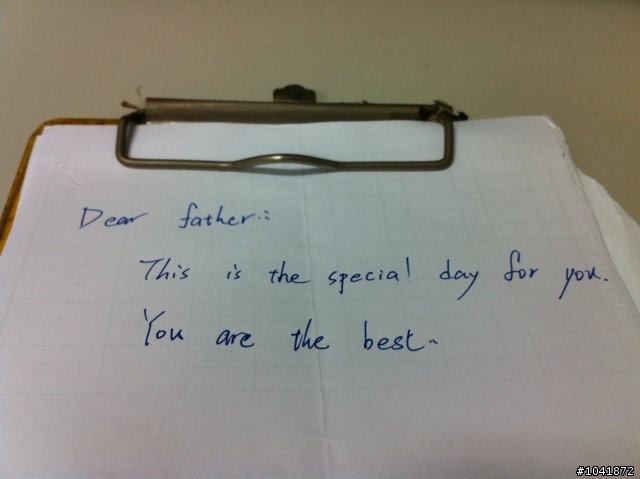 Dear father:
This is the special day for you.
You are the best.
#1041872